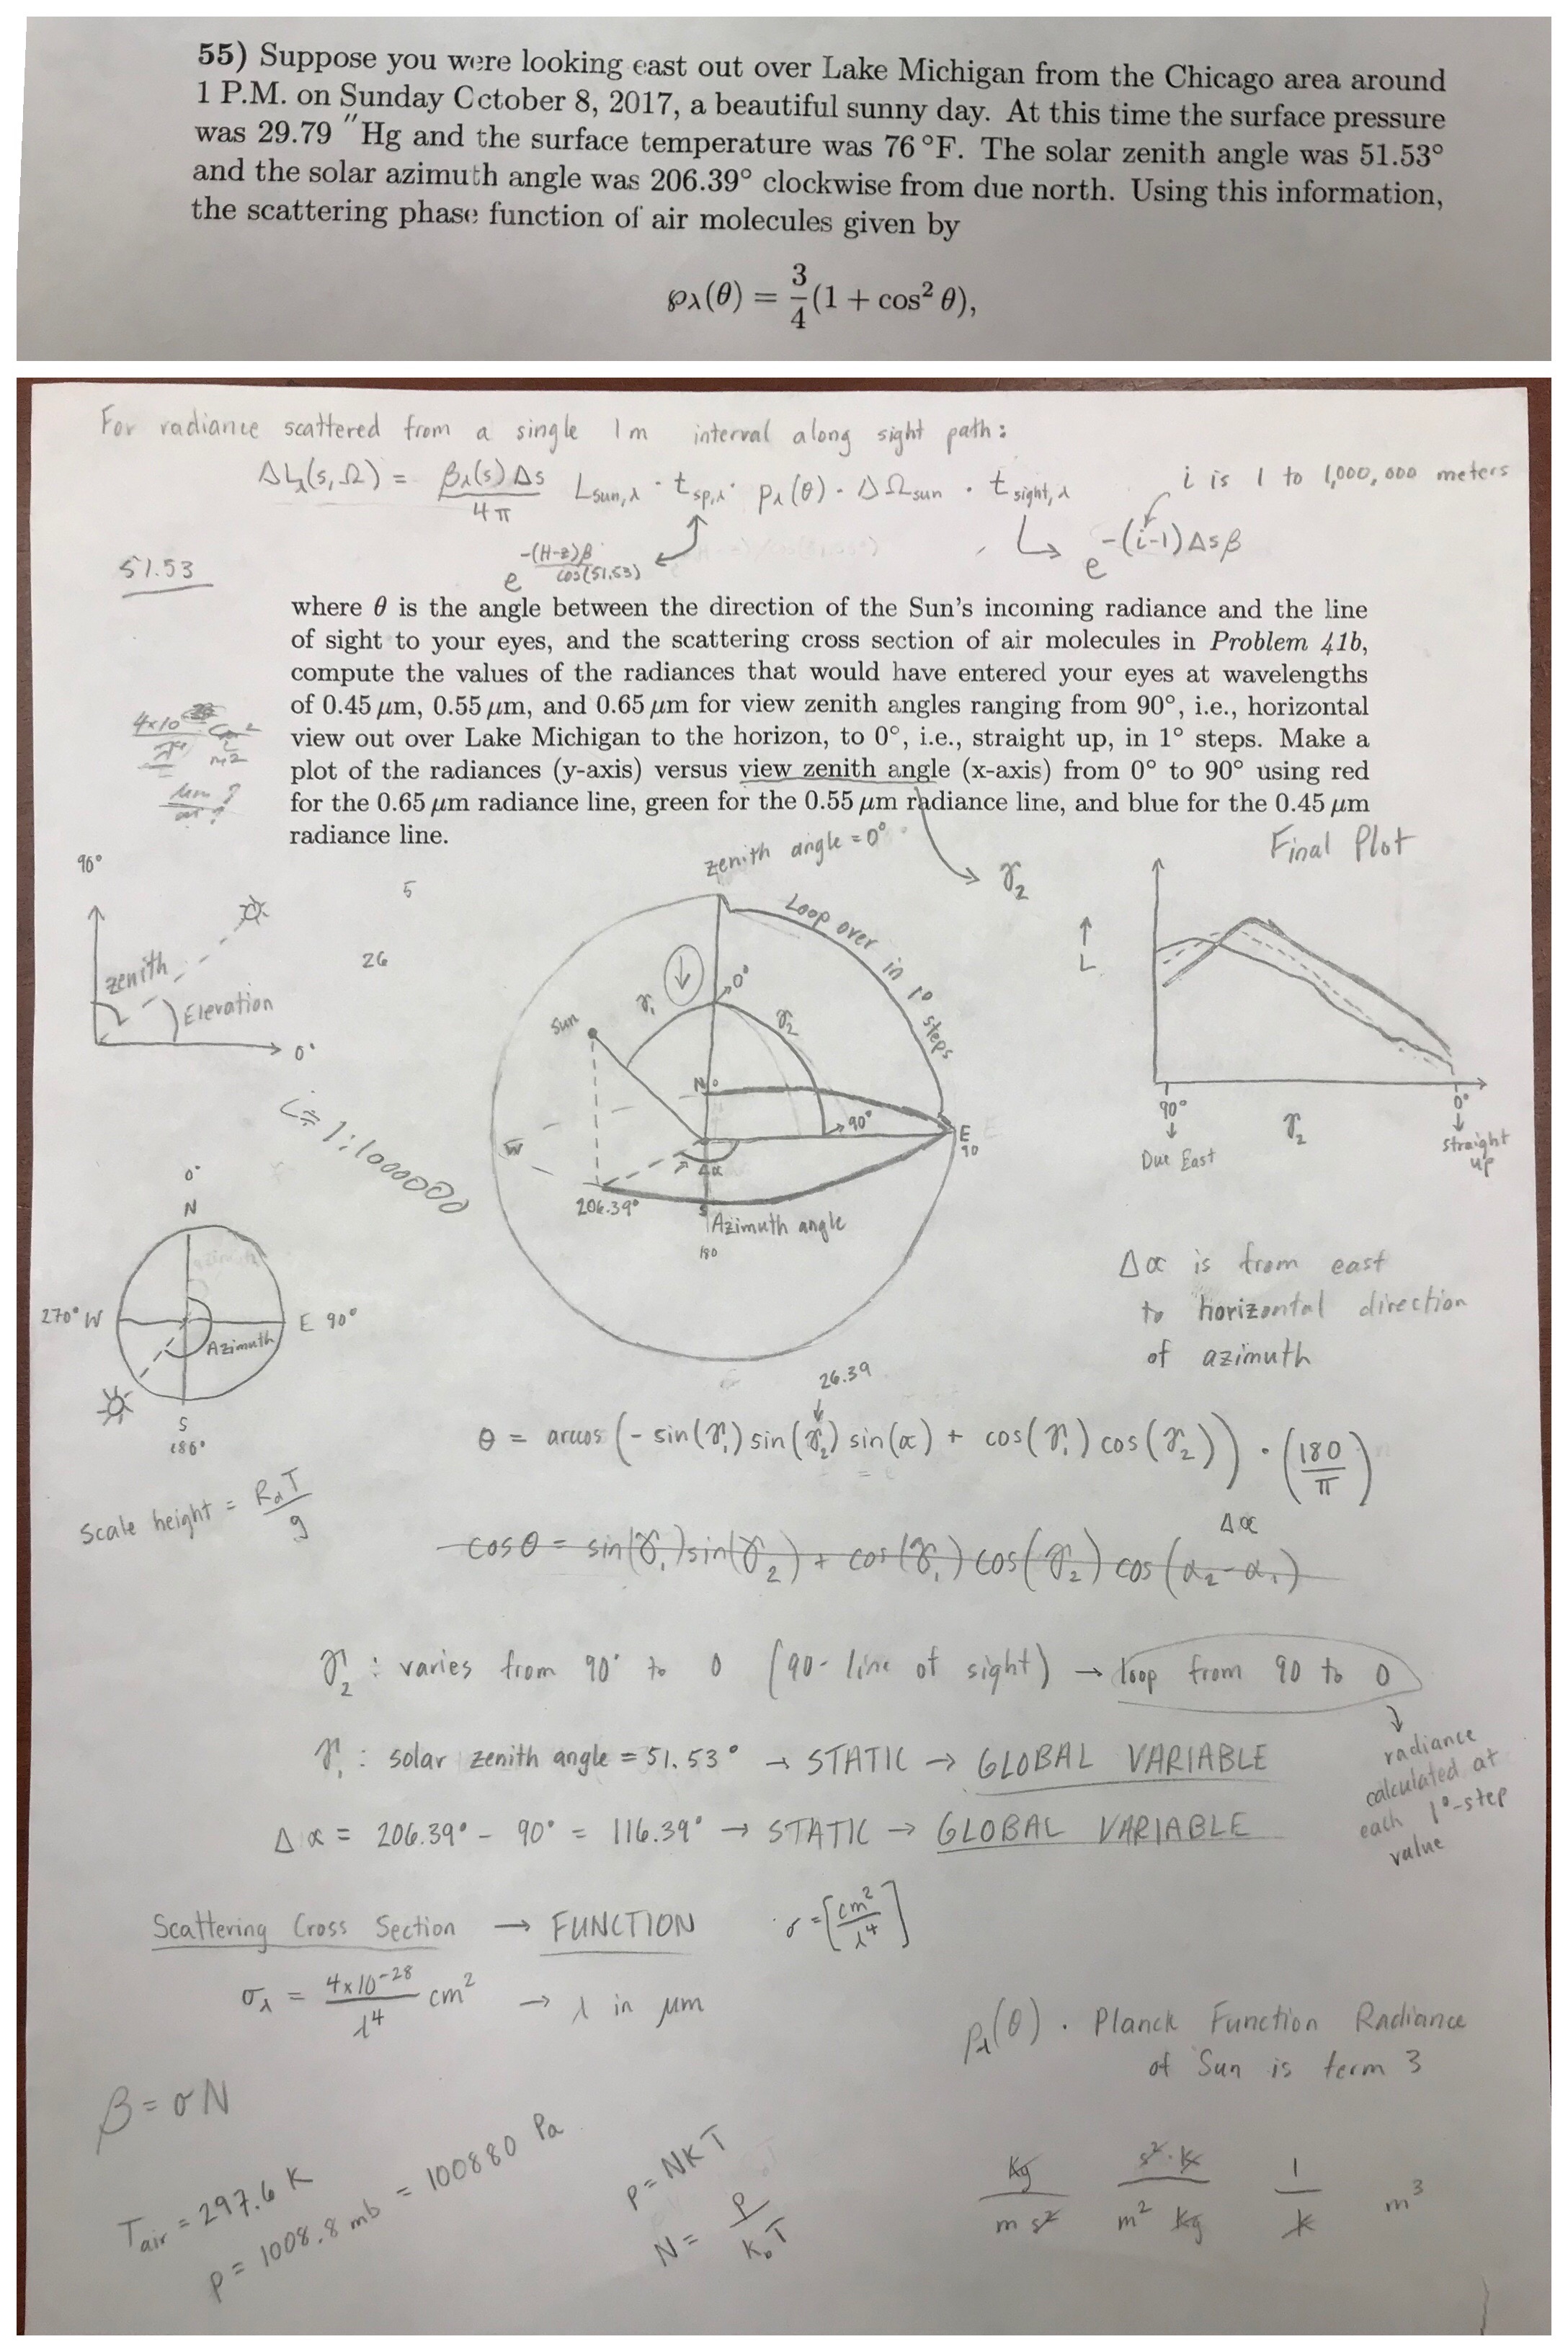 55) Suppose you were looking east out over Lake Michigan from the Chicago area around
1 P.M. on Sunday October 8, 2017, a beautiful sunny day. At this time the surface pressure
was 29.79 "Hg and the surface temperature was 76 °F. The solar zenith angle was 51.53°
and the solar azimuth angle was 206.39° clockwise from due north. Using this information,
the scattering phase function of air molecules given by
℘λ(θ) = 3/4 (1 + cos² θ),
For radiance scattered from a single 1m interval along sight path:
ΔLλ(s,Ω) = βλ(s)Δs / 4π Lsun,λ · tsp,λ · pλ(θ) · ΔΩsun · tsight,λ
i is 1 to 1,000,000 meters
e^-(H-z)β/cos(51.53)
e^-(i-1)Δsβ
51.53
where θ is the angle between the direction of the Sun's incoming radiance and the line
of sight to your eyes, and the scattering cross section of air molecules in Problem 41b,
compute the values of the radiances that would have entered your eyes at wavelengths
of 0.45 μm, 0.55 μm, and 0.65 μm for view zenith angles ranging from 90°, i.e., horizontal
view out over Lake Michigan to the horizon, to 0°, i.e., straight up, in 1° steps. Make a
plot of the radiances (y-axis) versus view zenith angle (x-axis) from 0° to 90° using red
for the 0.65 μm radiance line, green for the 0.55 μm radiance line, and blue for the 0.45 μm
radiance line.
zenith angle = 0°
γ₂
Final Plot
90°
zenith
Elevation
0°
5
26
Loop over in 1° steps
γ₁
0°
γ₂
Sun
N 0°
90°
E
90
W
Δα
206.39°
S
Azimuth angle
180
L
90°
Due East
γ₂
0°
straight up
i = 1:1000000
0°
N
270° W
E 90°
Azimuth
S
180°
Δα is from east
to horizontal direction
of azimuth
26.39
θ = arccos (- sin(γ₁) sin(γ₂) sin(α) + cos(γ₁) cos(γ₂)) · (180/π)
Scale height = RdT/g
Δα
cosθ = sin(γ₁)sin(γ₂) + cos(γ₁) cos(γ₂) cos(α₂-α₁)
γ₂ : varies from 90° to 0 (90- line of sight) → loop from 90 to 0
radiance
calculated at
each 1°-step
value
γ₁ : solar zenith angle = 51.53° → STATIC → GLOBAL VARIABLE
Δα = 206.39° - 90° = 116.39° → STATIC → GLOBAL VARIABLE
Scattering Cross Section → FUNCTION
σ = [cm²/λ⁴]
σλ = 4x10⁻²⁸/λ⁴ cm² → λ in μm
pλ(θ) · Planck Function Radiance
of Sun is term 3
β = σN
Tair = 297.6 K
P = 1008.8 mb = 100880 Pa
P = NKT
N = P/KbT
Kg/m s² s²·K/m² Kg 1/K m³